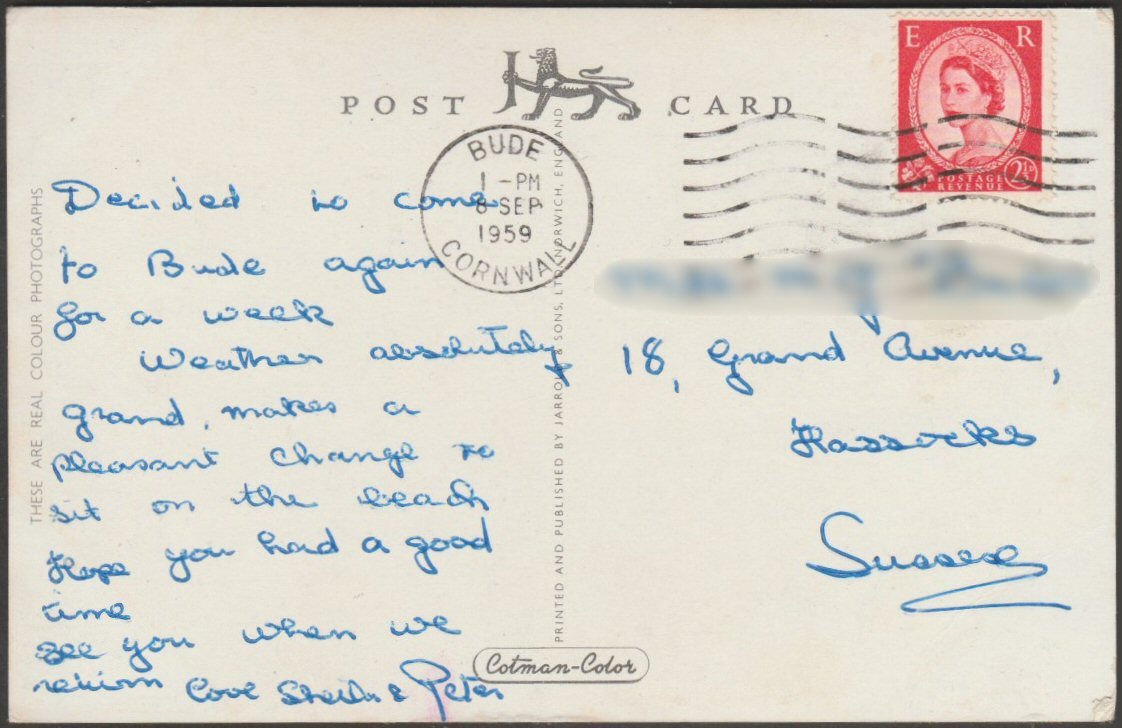 POST CARD
E R
POSTAGE
REVENUE
2½D
BUDE
1 - PM
8 SEP
1959
CORNWALL
THESE ARE REAL COLOUR PHOTOGRAPHS
Decided to come
to Bude again
for a week
Weather absolutely
grand, makes a
pleasant change to
sit on the beach
Hope you had a good
time
see you when we
return Love Sheila & Peter
PRINTED AND PUBLISHED BY JARROLD & SONS, LTD. NORWICH, ENGLAND
Cotman-Color
18, Grand Avenue,
Hassocks
Sussex